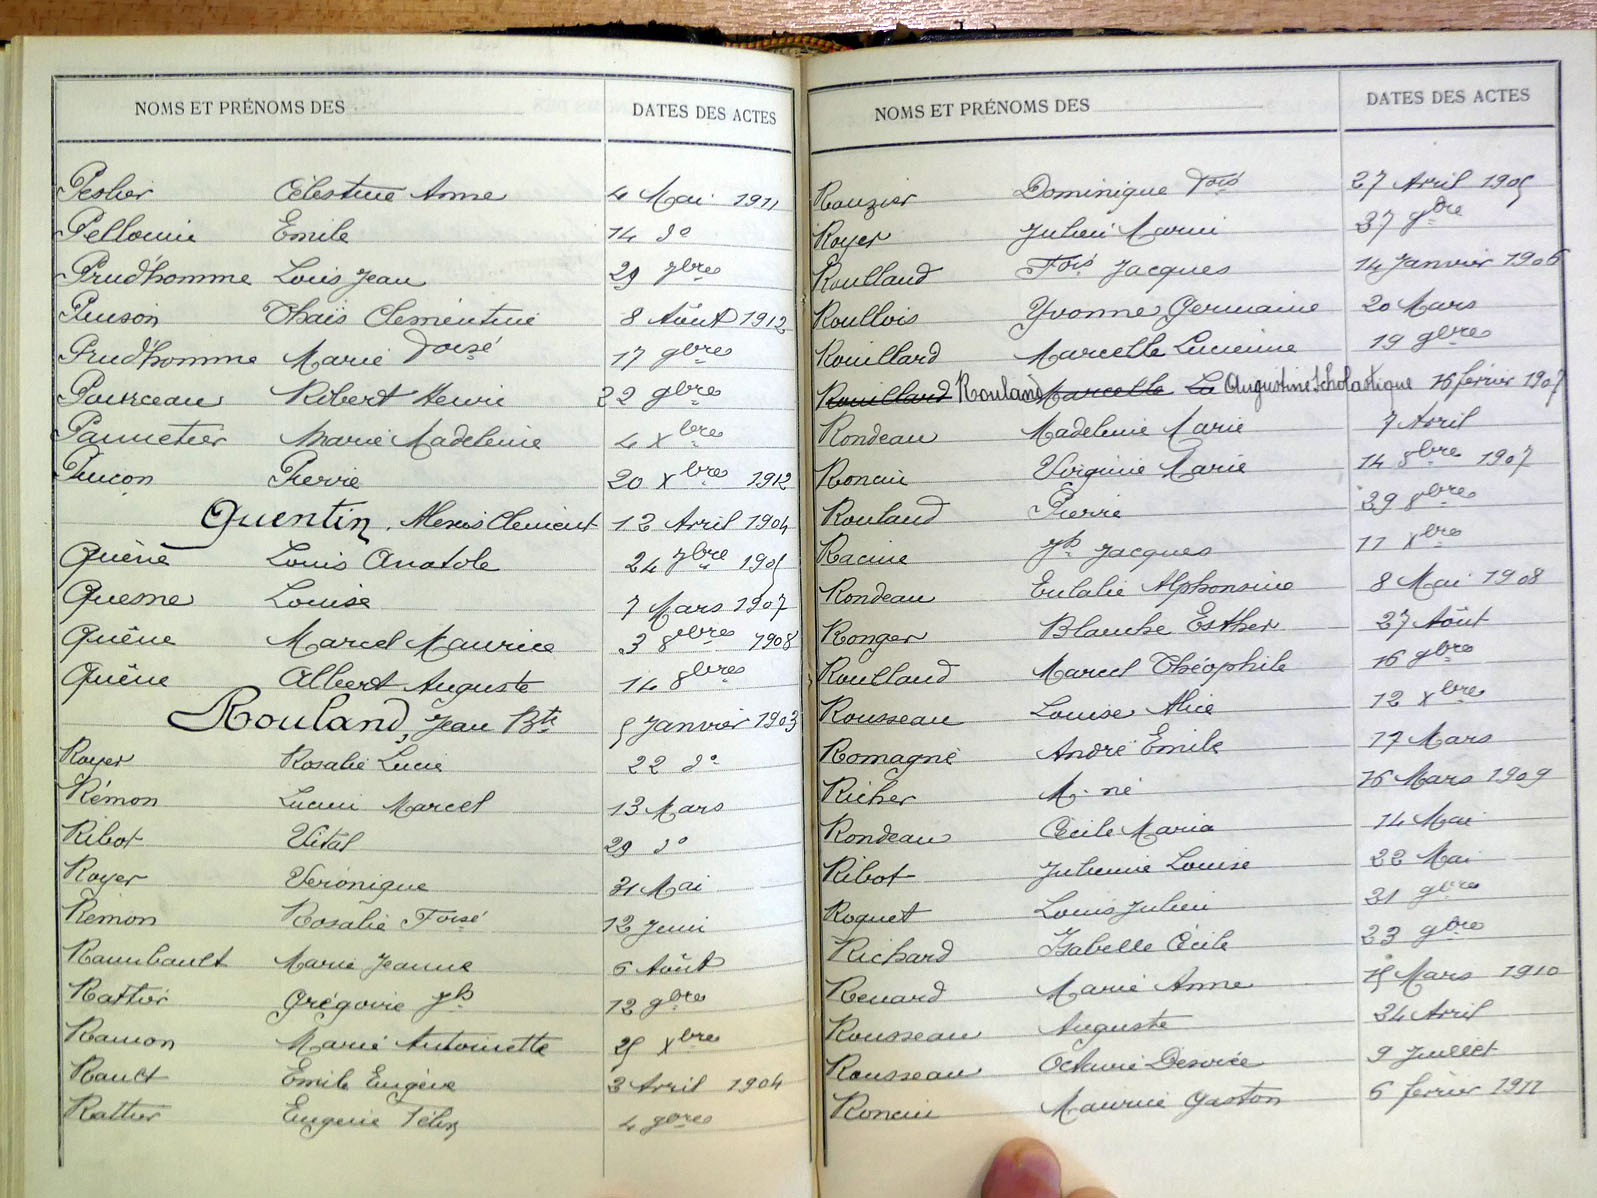 NOMS ET PRÉNOMS DES DATES DES ACTES
Peslier Célestine Anne 4 Mai 1911
Pellouin Emile 14 do
Prud'homme Louis Jean 29 7bres
Pinson Thaïs Clémentine 8 Août 1912
Prud'homme Marie Foisé 17 9bres
Pourceau Robert Henri 22 9bres
Pannetier Marie Madeleine 4 Xbres
Pinçon Pierre 20 Xbres 1912
Quentin, Alexis Clément 12 Avril 1904
Quêne Louis Anatole 24 7bre 1905
Quesne Louise 7 Mars 1907
Quêne Marcel Maurice 3 8bres 1908
Quêne Albert Auguste 14 8bres
Rouland, Jean Bte 5 Janvier 1903
Royer Rosalie Lucie 22 do
Rémon Lucien Marcel 13 Mars
Ribot Vital 29 do
Royer Véronique 31 Mai
Rémon Rosalie Foisé 12 Juin
Raimbault Marie Jeanne 6 Août
Rattier Grégoire Jh 12 9bres
Ramon Marie Antoinette 25 Xbres
Emile Eugène 3 Avril 1904
Rattier Eugène Félix 4 9bres
NOMS ET PRÉNOMS DES DATES DES ACTES
Rouzier Dominique Fois 27 Avril 1905
Royer Julien Marin 9bre
Roulland Fois Jacques 14 Janvier 1906
Roullois Yvonne Germaine 20 Mars
Rouillard Marcelle Lucienne 19 9bres
Rouillard Rouland Marcelle Lu Augustine Scholastique 16 février 1907
Rondeau Madeleine Marie 7 Avril
Roncin Virginie Marie 14 8bre 1907
Rouland Pierre 29 8bres
Racine Jh Jacques 11 Xbres
Rondeau Eulalie Alphonsine 8 Mai 1908
Ronger Blanche Esther 27 Août
Roulland Marcel Théophile 16 9bres
Rousseau Louise Alice 12 Xbres
Romagné André Emile 17 Mars
Richer M. né 16 Mars 1909
Rondeau Cécile Maria 14 Mai
Ribot Julienne Louise 22 Mai
Roquet Louis Julien 21 9bres
Richard Isabelle Cécile 23 9bre
Renard Marie Anne 15 Mars 1910
Rousseau Auguste 24 Avril
Rousseau Octavie Désirée 9 Juillet
Roncin Maurice Gaston 6 février 1911